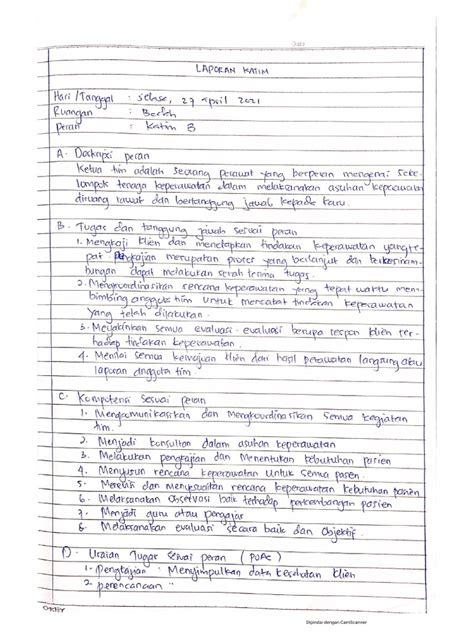 LAPORAN KATIM
Hari / Tanggal : selasa, 27 April 2021
Ruangan : Bedah
Peran : Katim B
A. Deskripsi peran
Ketua tim adalah seorang perawat yang berperan mengenai seke-
lompok tenaga keperawatan dalam melaksanakan asuhan keperawatan
diruang rawat dan bertanggung jawab kepada karu.
B. Tugas dan tanggung jawab sesuai peran
1. Mengkaji klien dan menetapkan tindakan keperawatan yang te-
pat. Pengkajian merupakan proses yang berlanjut dan berkesinam-
bungan dapat melakukan serah terima tugas.
2. Mengkoordinasikan rencana keperawatan yang tepat waktu mem-
bimbing anggota tim untuk mencatat tindakan keperawatan
yang telah dilakukan.
3. Meyakinkan semua evaluasi-evaluasi berupa respon klien ter-
hadap tindakan keperawatan.
4. Menilai semua kemajuan klien dari hasil perawatan langsung atau
laporan anggota tim.
C. Kompetensi sesuai peran
1. Mengkomunikasikan dan Mengkoordinasikan semua kegiatan
tim.
2. Menjadi konsultan dalam asuhan keperawatan
3. Melakukan pengkajian dan Menentukan kebutuhan pasien
4. Menyusun rencana keperawatan Untuk semua pasien
5. Merevisi dan Menyesuaikan rencana keperawatan kebutuhan pasien
6. Melaksanakan Observasi baik terhadap perkembangan pasien
7. Menjadi guru atau pengajar
8. Melaksanakan evaluasi secara baik dan Objektif.
D. Uraian Tugas sesuai peran (POAC)
1. Pengkajian : Menyimpulkan data kesehatan klien
2. perencanaan "
Dipindai dengan CamScanner